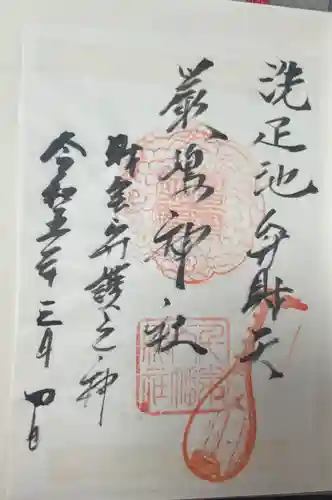 洗足池弁財天
厳嶋神社
財宝弁護之神
令和五年三月四日